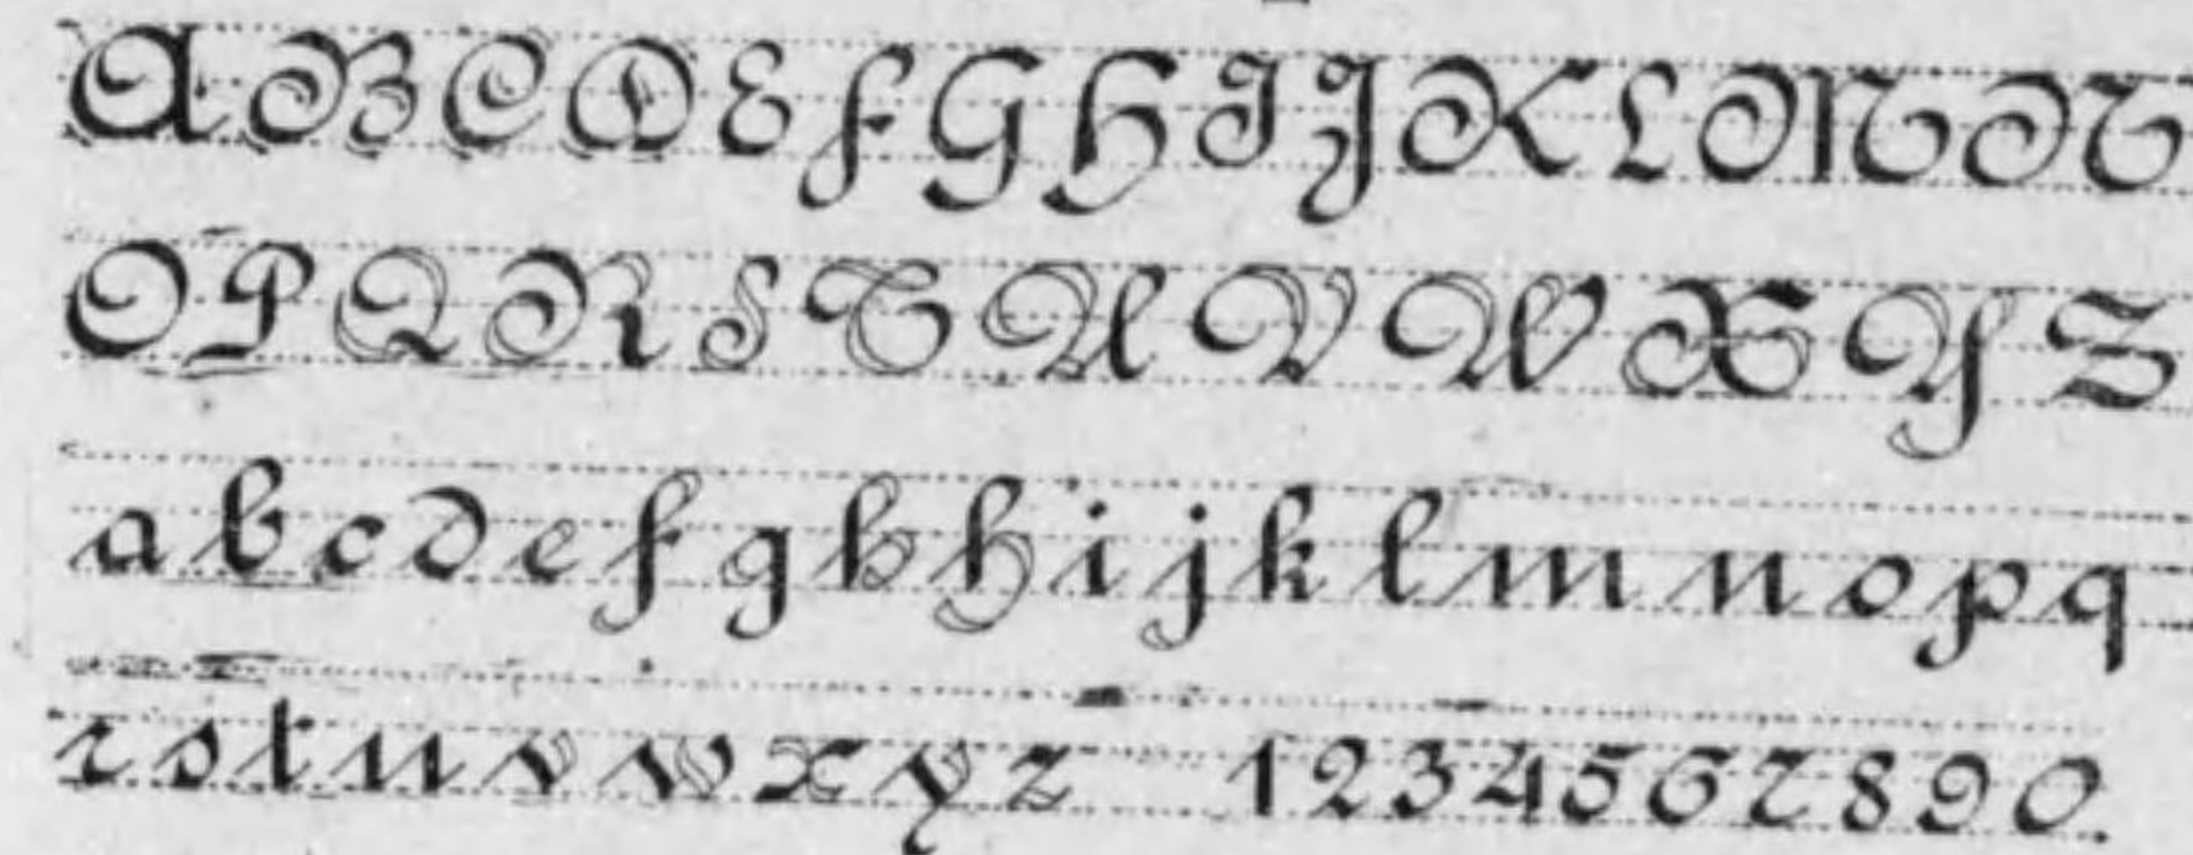 A B C D E F G H I J K L M N
O P Q R S T U V W X Y Z
a b c d e f g h h i j k l m n o p q
r s t u v w x y z 1 2 3 4 5 6 7 8 9 0.